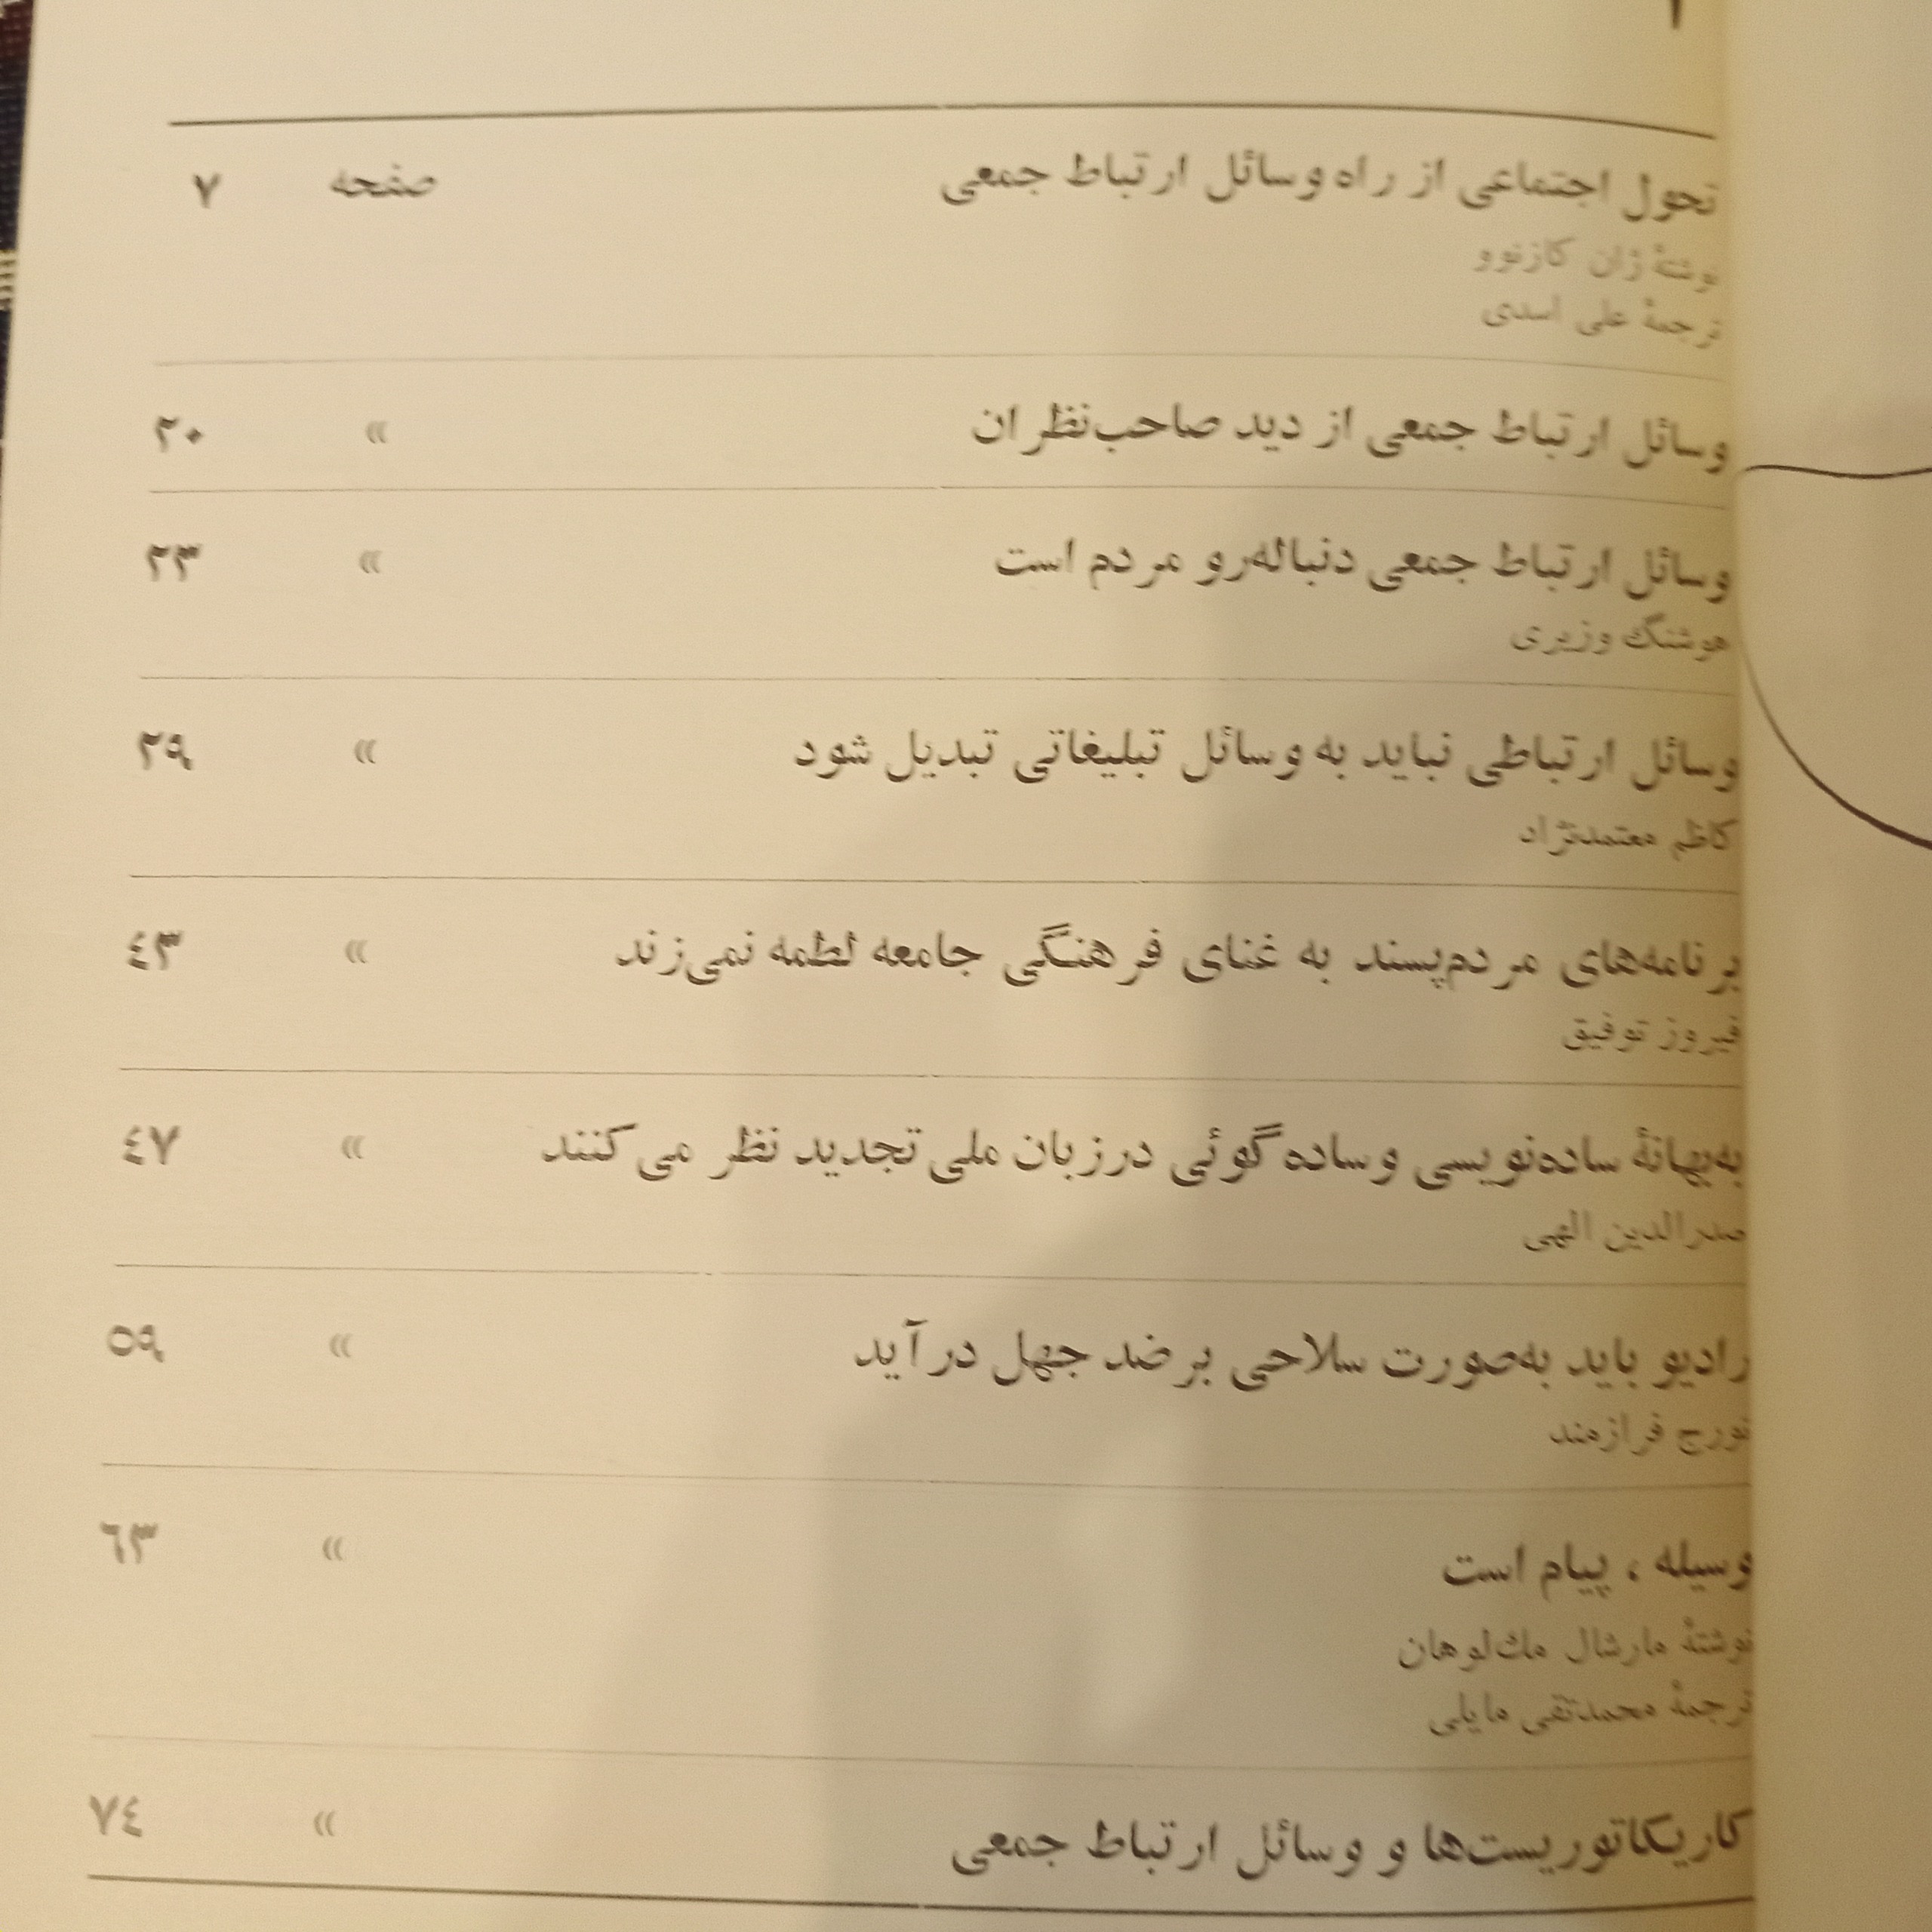 تحول اجتماعی از راه وسائل ارتباط جمعی صفحه ۷
نوشتهٔ ژان کازنوو
ترجمهٔ علی اسدی
وسائل ارتباط جمعی از دید صاحب‌نظران » ۲۰
وسائل ارتباط جمعی دنباله‌رو مردم است » ۲۳
هوشنگ وزیری
وسائل ارتباطی نباید به وسائل تبلیغاتی تبدیل شود » ۲۹
کاظم معتمدنژاد
برنامه‌های مردم‌پسند به غنای فرهنگی جامعه لطمه نمی‌زند » ٤۳
فیروز توفیق
به‌بهانهٔ ساده‌نویسی و ساده‌گوئی در زبان ملی تجدید نظر می‌کنند » ٤۷
صدرالدین الهی
رادیو باید به‌صورت سلاحی برضد جهل درآید » ٥۹
تورج فرازمند
وسیله ، پیام است » ٦۳
نوشتهٔ مارشال مك‌لوهان
ترجمهٔ محمدتقی مایلی
کاریکاتوریست‌ها و وسائل ارتباط جمعی » ۷٤